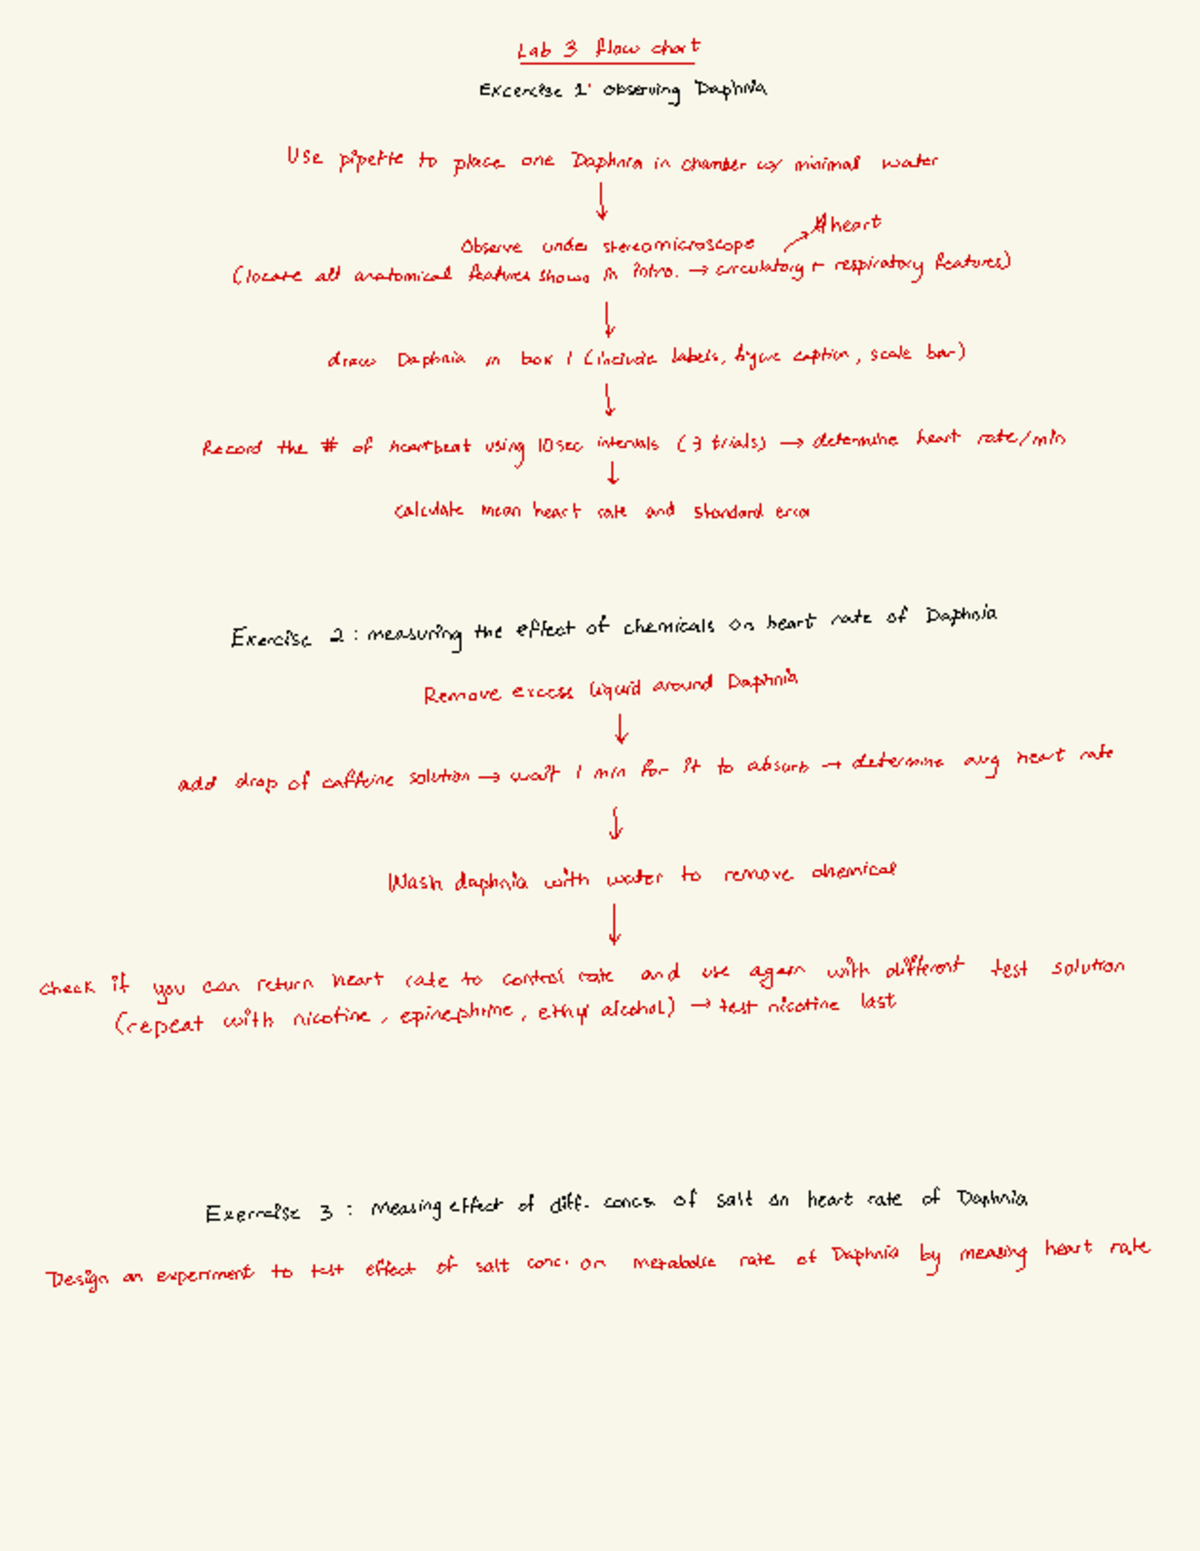 Lab 3 flow chart
Excercise 1: observing Daphnia
Use pipette to place one Daphnia in chamber w/ minimal water
↓
Observe under stereomicroscope ↗ heart
(locate all anatomical features shown in intro. → circulatory + respiratory features)
↓
draw Daphnia in box 1 (include labels, figure caption, scale bar)
↓
Record the # of heartbeat using 10sec intervals (3 trials) → determine heart rate/min
↓
calculate mean heart rate and standard error
Exercise 2: measuring the effect of chemicals on heart rate of Daphnia
Remove excess liquid around Daphnia
↓
add drop of caffeine solution → wait 1 min for it to absorb → determine avg heart rate
↓
Wash daphnia with water to remove chemical
↓
check if you can return heart rate to control rate and use again with different test solution
(repeat with nicotine, epinephrine, ethyl alcohol) → test nicotine last
Exercise 3: Measing effect of diff. concs. of salt on heart rate of Daphnia
Design an experiment to test effect of salt conc. on metabolic rate of Daphnia by measing heart rate